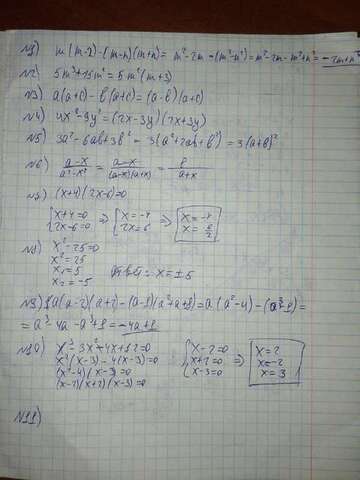 №1) m(m-2)-(m-n)(m+n)= m²-2m-(m²-n²)=m²-2m-m²+n²=-2m+n²
№2) 5m³+15m²=5m²(m+3)
№3) a(a+c)-в(a+c)=(a-в)(a+c)
№4) 4x²-9y²=(2x-3y)(2x+3y)
№5) 3a²-6aв+3в²=3(a²+2aв+в²)=3(a+в)²
№6) (a-x)/(a²-x²)=(a-x)/((a-x)(a+x))=1/(a+x)
(x+4)(2x-6)=0
{x+4=0 => {x=-4 => x=-4
{2x-6=0 {2x=6 x=6/2
x²-25=0
x²=25
x₁=5 Ответ: x=±5
x₂=-5
a(a-2)(a+2)-(a-1)(a²+a+1)=a(a²-4)-(a³-1)=
=a³-4a-a³+1=-4a+1
№10) x³-3x²-4x+12=0
x²(x-3)-4(x-3)=0
(x²-4)(x-3)=0
(x-2)(x+2)(x-3)=0
{x-2=0 => x=2
{x+2=0 x=-2
{x-3=0 x=3
№11)